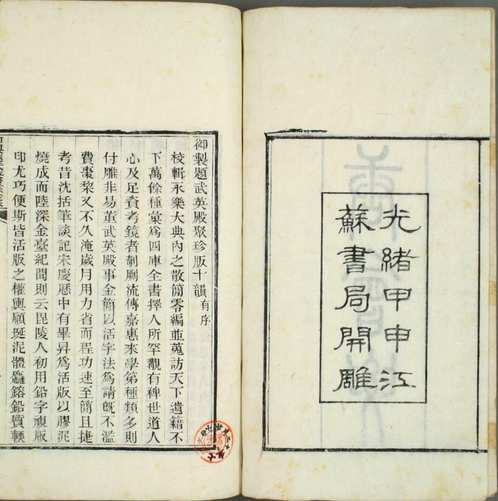 光緒甲申江
蘇書局開雕
御製題武英殿聚珍版十韻有序
校輯永樂大典內之散簡零編並蒐訪天下遺籍不
下萬餘種彙爲四庫全書擇人所罕覯有裨世道人
心及足資考鏡者剞劂流傳嘉惠來學第種類多則
付雕非易董武英殿事金簡以活字法爲請既不濫
費棗棃又不久淹歲月用力省而程功速至簡且捷
考昔沈括筆談記宋慶歷中有畢昇爲活版以膠泥
燒成而陸深金臺紀聞則云毘陵人初用鉛字視版
印尤巧便斯皆活版之權輿顧埏泥體麤鎔鉛質輭